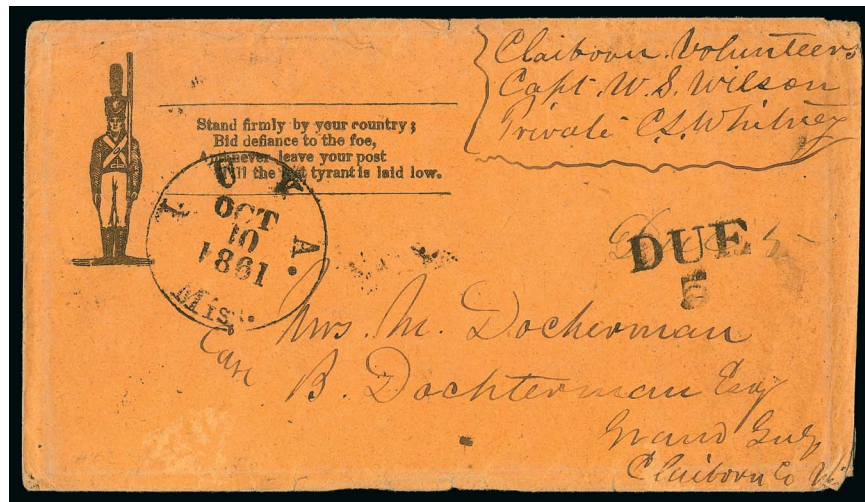 Claiborn Volunteers
Capt. W. S. Wilson
Private C. S. Whitney
Stand firmly by your country;
Bid defiance to the foe,
And never leave your post
Till the last tyrant is laid low.
I U K A.
OCT
10
1861
Miss.
Due 5
DUE
5
Mrs. M. Docherman
Care
B. Dochterman Esq
Grand Gulf
Claiborn Co